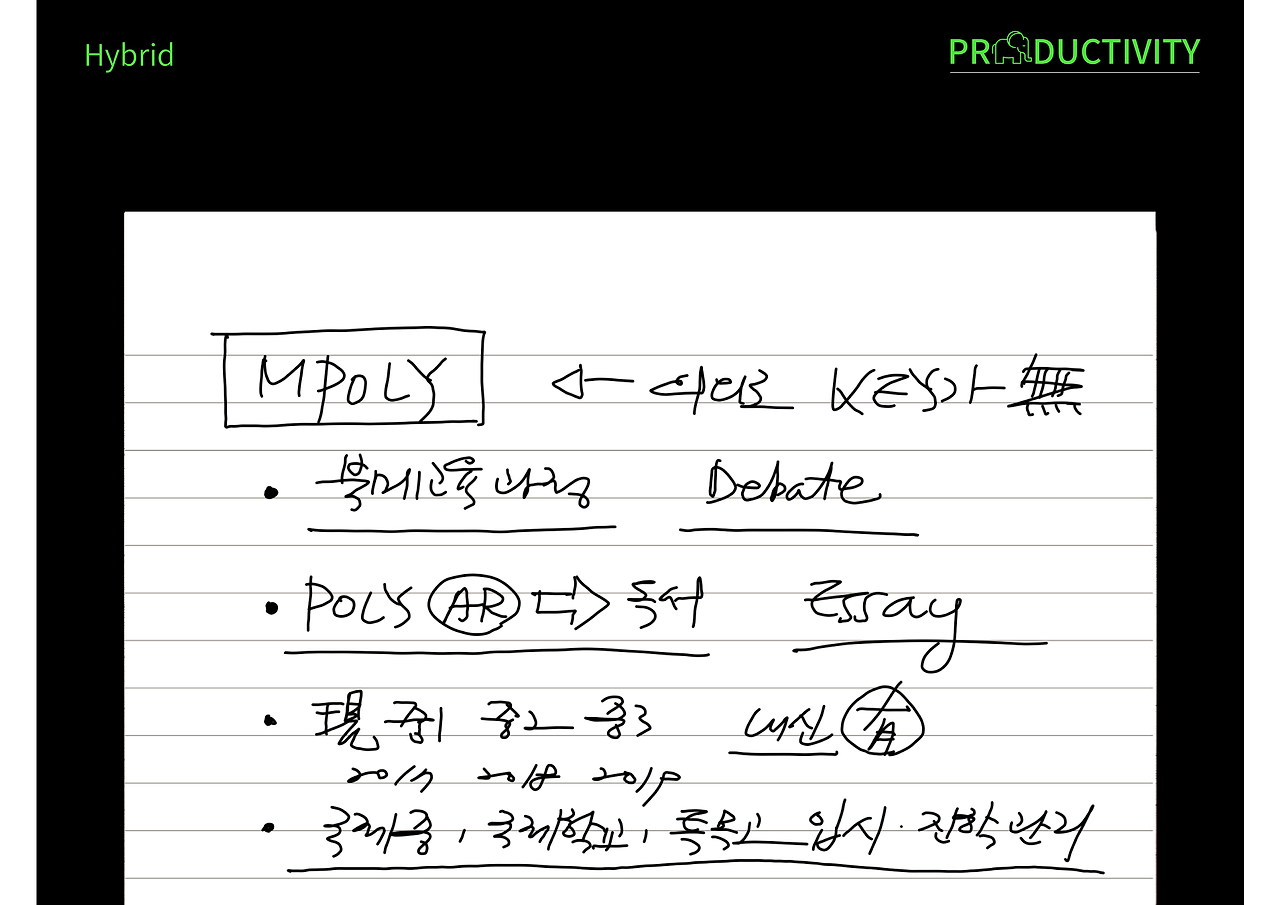 Hybrid
PRODUCTIVITY
MPOLY ← 수업료 KEY가 無
• 봄메교육과정 Debate
• POLY AR ⇨ 독서 Essay
• 現 중1 중2 중3 내신 有
2017 2018 2019
• 국제중, 국제학교, 특목고 입시·진학관리